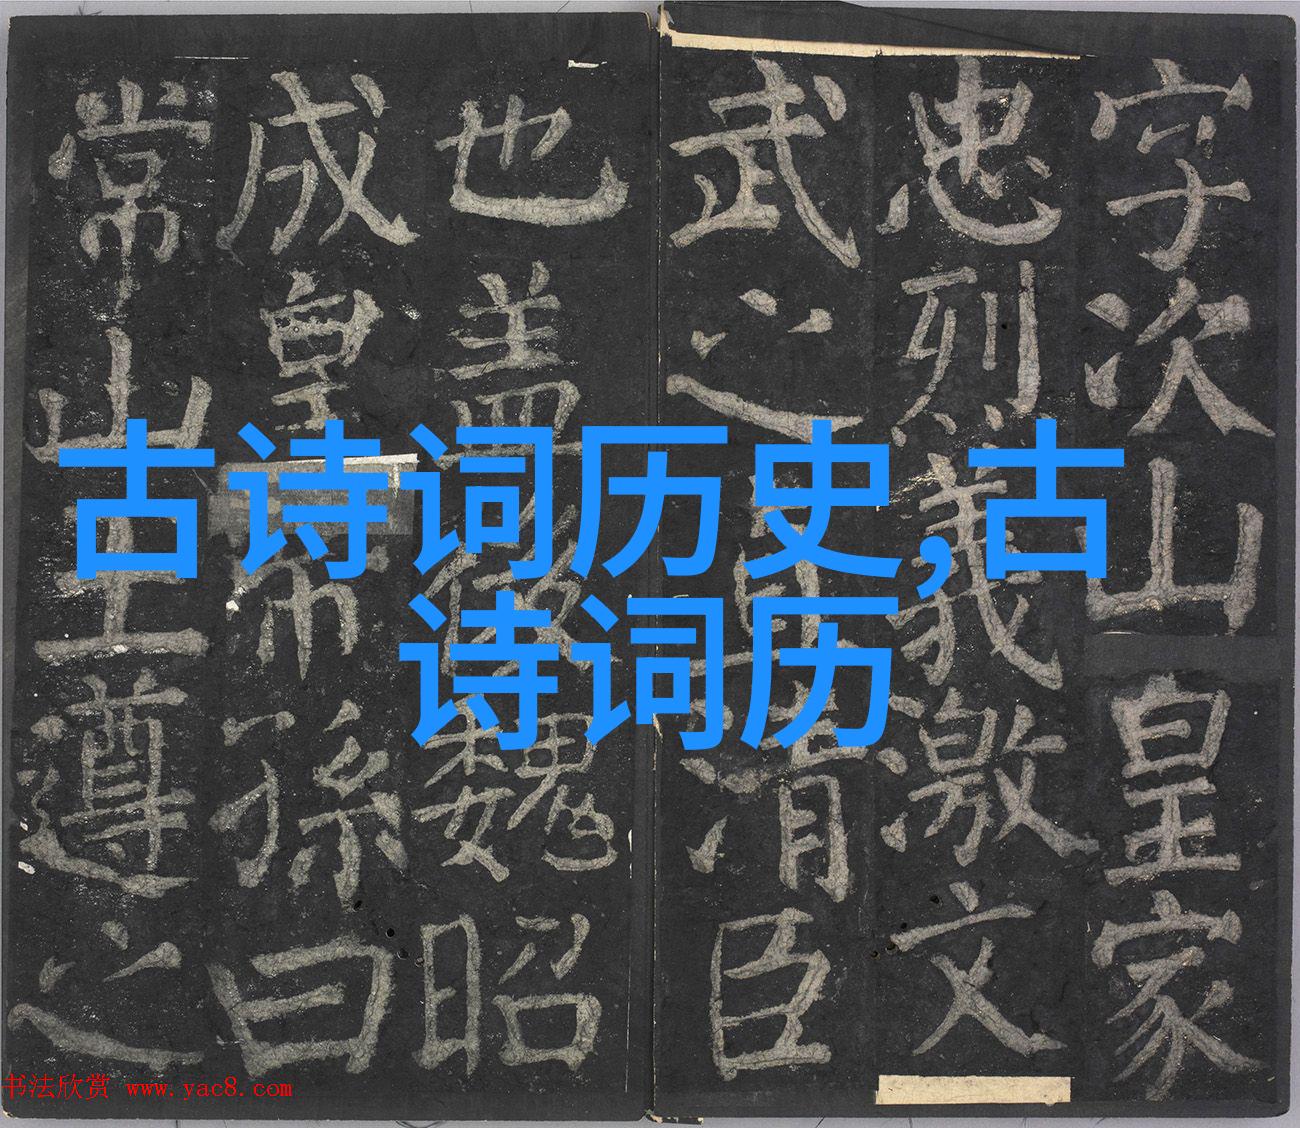 古诗词历史,古
诗词历
字次山皇家
忠烈義激文
武之清臣
也盖後魏昭
成皇帝孫曰
常山王遵之
书法欣赏 www.yac8.com